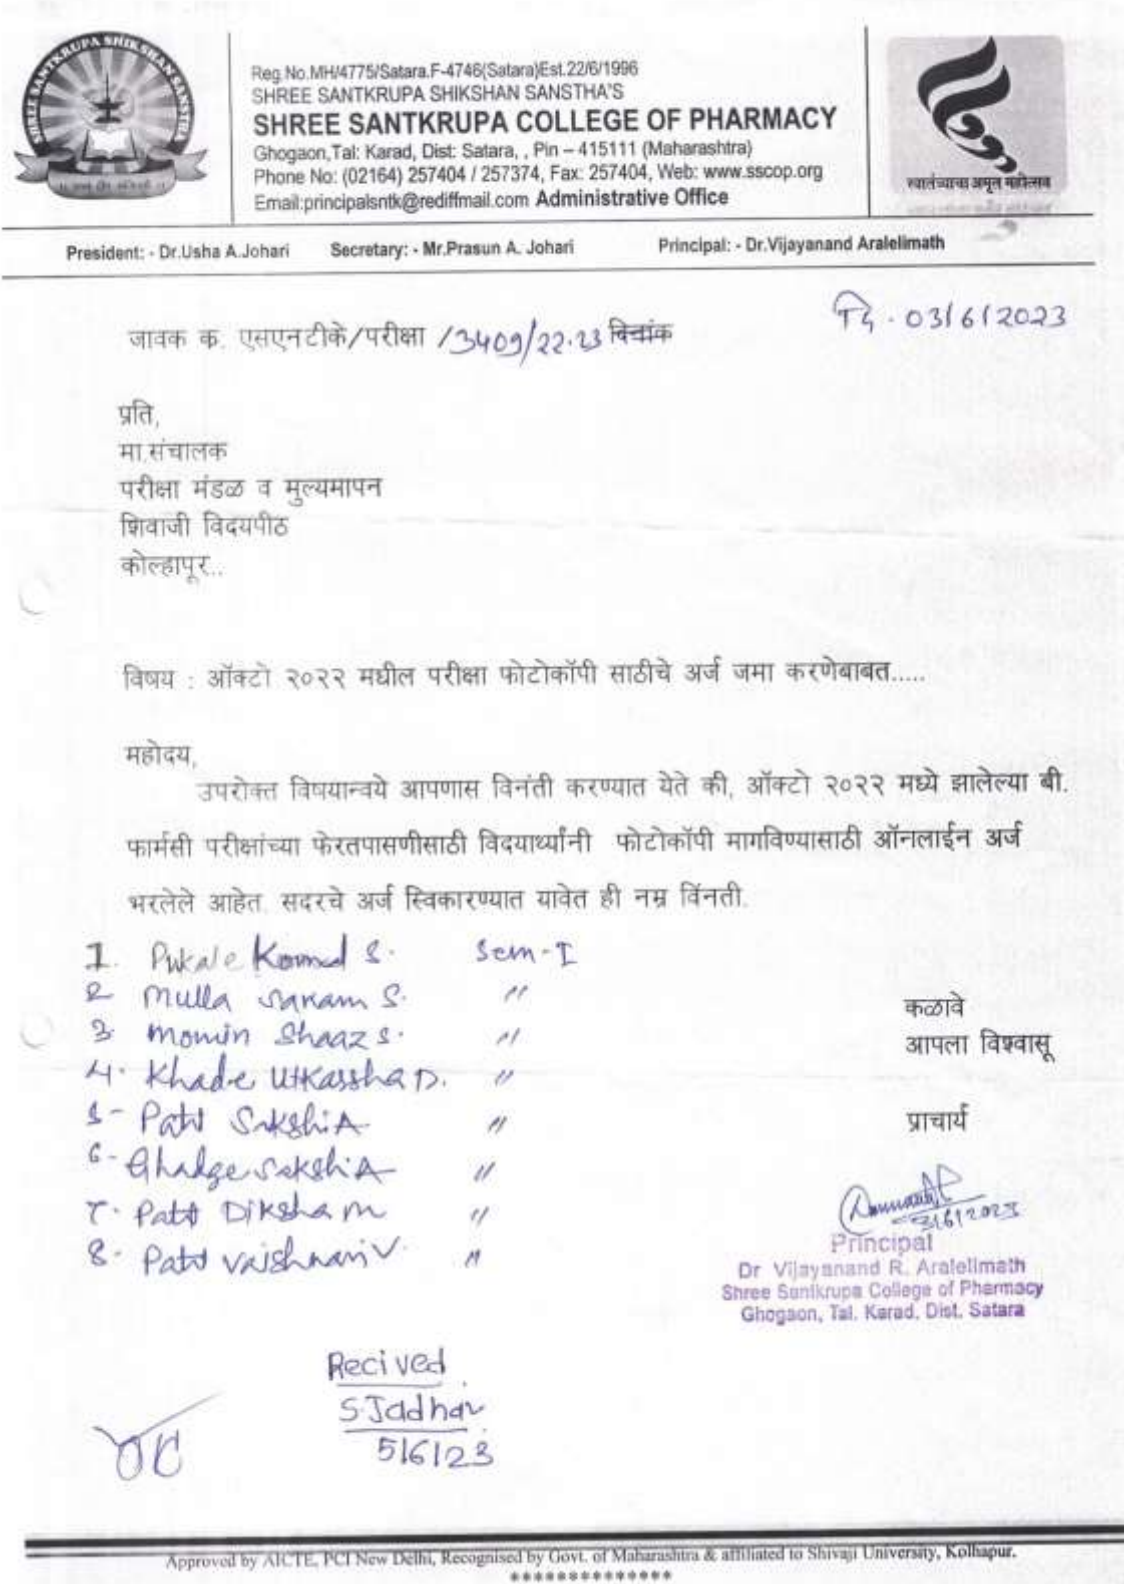 SHREE SANTKRUPA SHIKSHAN SANSTHA
Reg.No.MH/4775/Satara.F-4746(Satara)Est.22/6/1996
SHREE SANTKRUPA SHIKSHAN SANSTHA'S
SHREE SANTKRUPA COLLEGE OF PHARMACY
Ghogaon,Tal: Karad, Dist: Satara, , Pin – 415111 (Maharashtra)
Phone No: (02164) 257404 / 257374, Fax: 257404, Web: www.sscop.org
Email:principalsntk@rediffmail.com Administrative Office
स्वातंत्र्याचा अमृत महोत्सव
President: - Dr.Usha A.Johari Secretary: - Mr.Prasun A. Johari Principal: - Dr.Vijayanand Aralelimath
दि. 03/6/2023
जावक क. एसएनटीके/परीक्षा /3409/22-23 दिनांक
प्रति,
मा.संचालक
परीक्षा मंडळ व मुल्यमापन
शिवाजी विदयपीठ
कोल्हापूर..
विषय : ऑक्टो २०२२ मधील परीक्षा फोटोकॉपी साठीचे अर्ज जमा करणेबाबत.....
महोदय,
उपरोक्त विषयान्वये आपणास विनंती करण्यात येते की, ऑक्टो २०२२ मध्ये झालेल्या बी.
फार्मसी परीक्षांच्या फेरतपासणीसाठी विदयार्थ्यांनी फोटोकॉपी मागविण्यासाठी ऑनलाईन अर्ज
भरलेले आहेत. सदरचे अर्ज स्विकारण्यात यावेत ही नम्र विंनती.
1. Pukale Komal S. Sem-I
2 Mulla Sanam S. "
3 Momin Shaaz S. "
4. Khade Utkarsha D. "
5- Patil Sakshi A "
6- Ghadge Sakshi A "
7. Patil Diksha M "
8- Patil Vaishnavi V. "
कळावे
आपला विश्वासू
प्राचार्य
3/6/2023
Principal
Dr Vijayanand R. Aralelimath
Shree Santkrupa College of Pharmacy
Ghogaon, Tal. Karad. Dist. Satara
Recived
S.Jadhav
5/6/23
OC
Approved by AICTE, PCI New Delhi, Recognised by Govt. of Maharashtra & affiliated to Shivaji University, Kolhapur.
**************